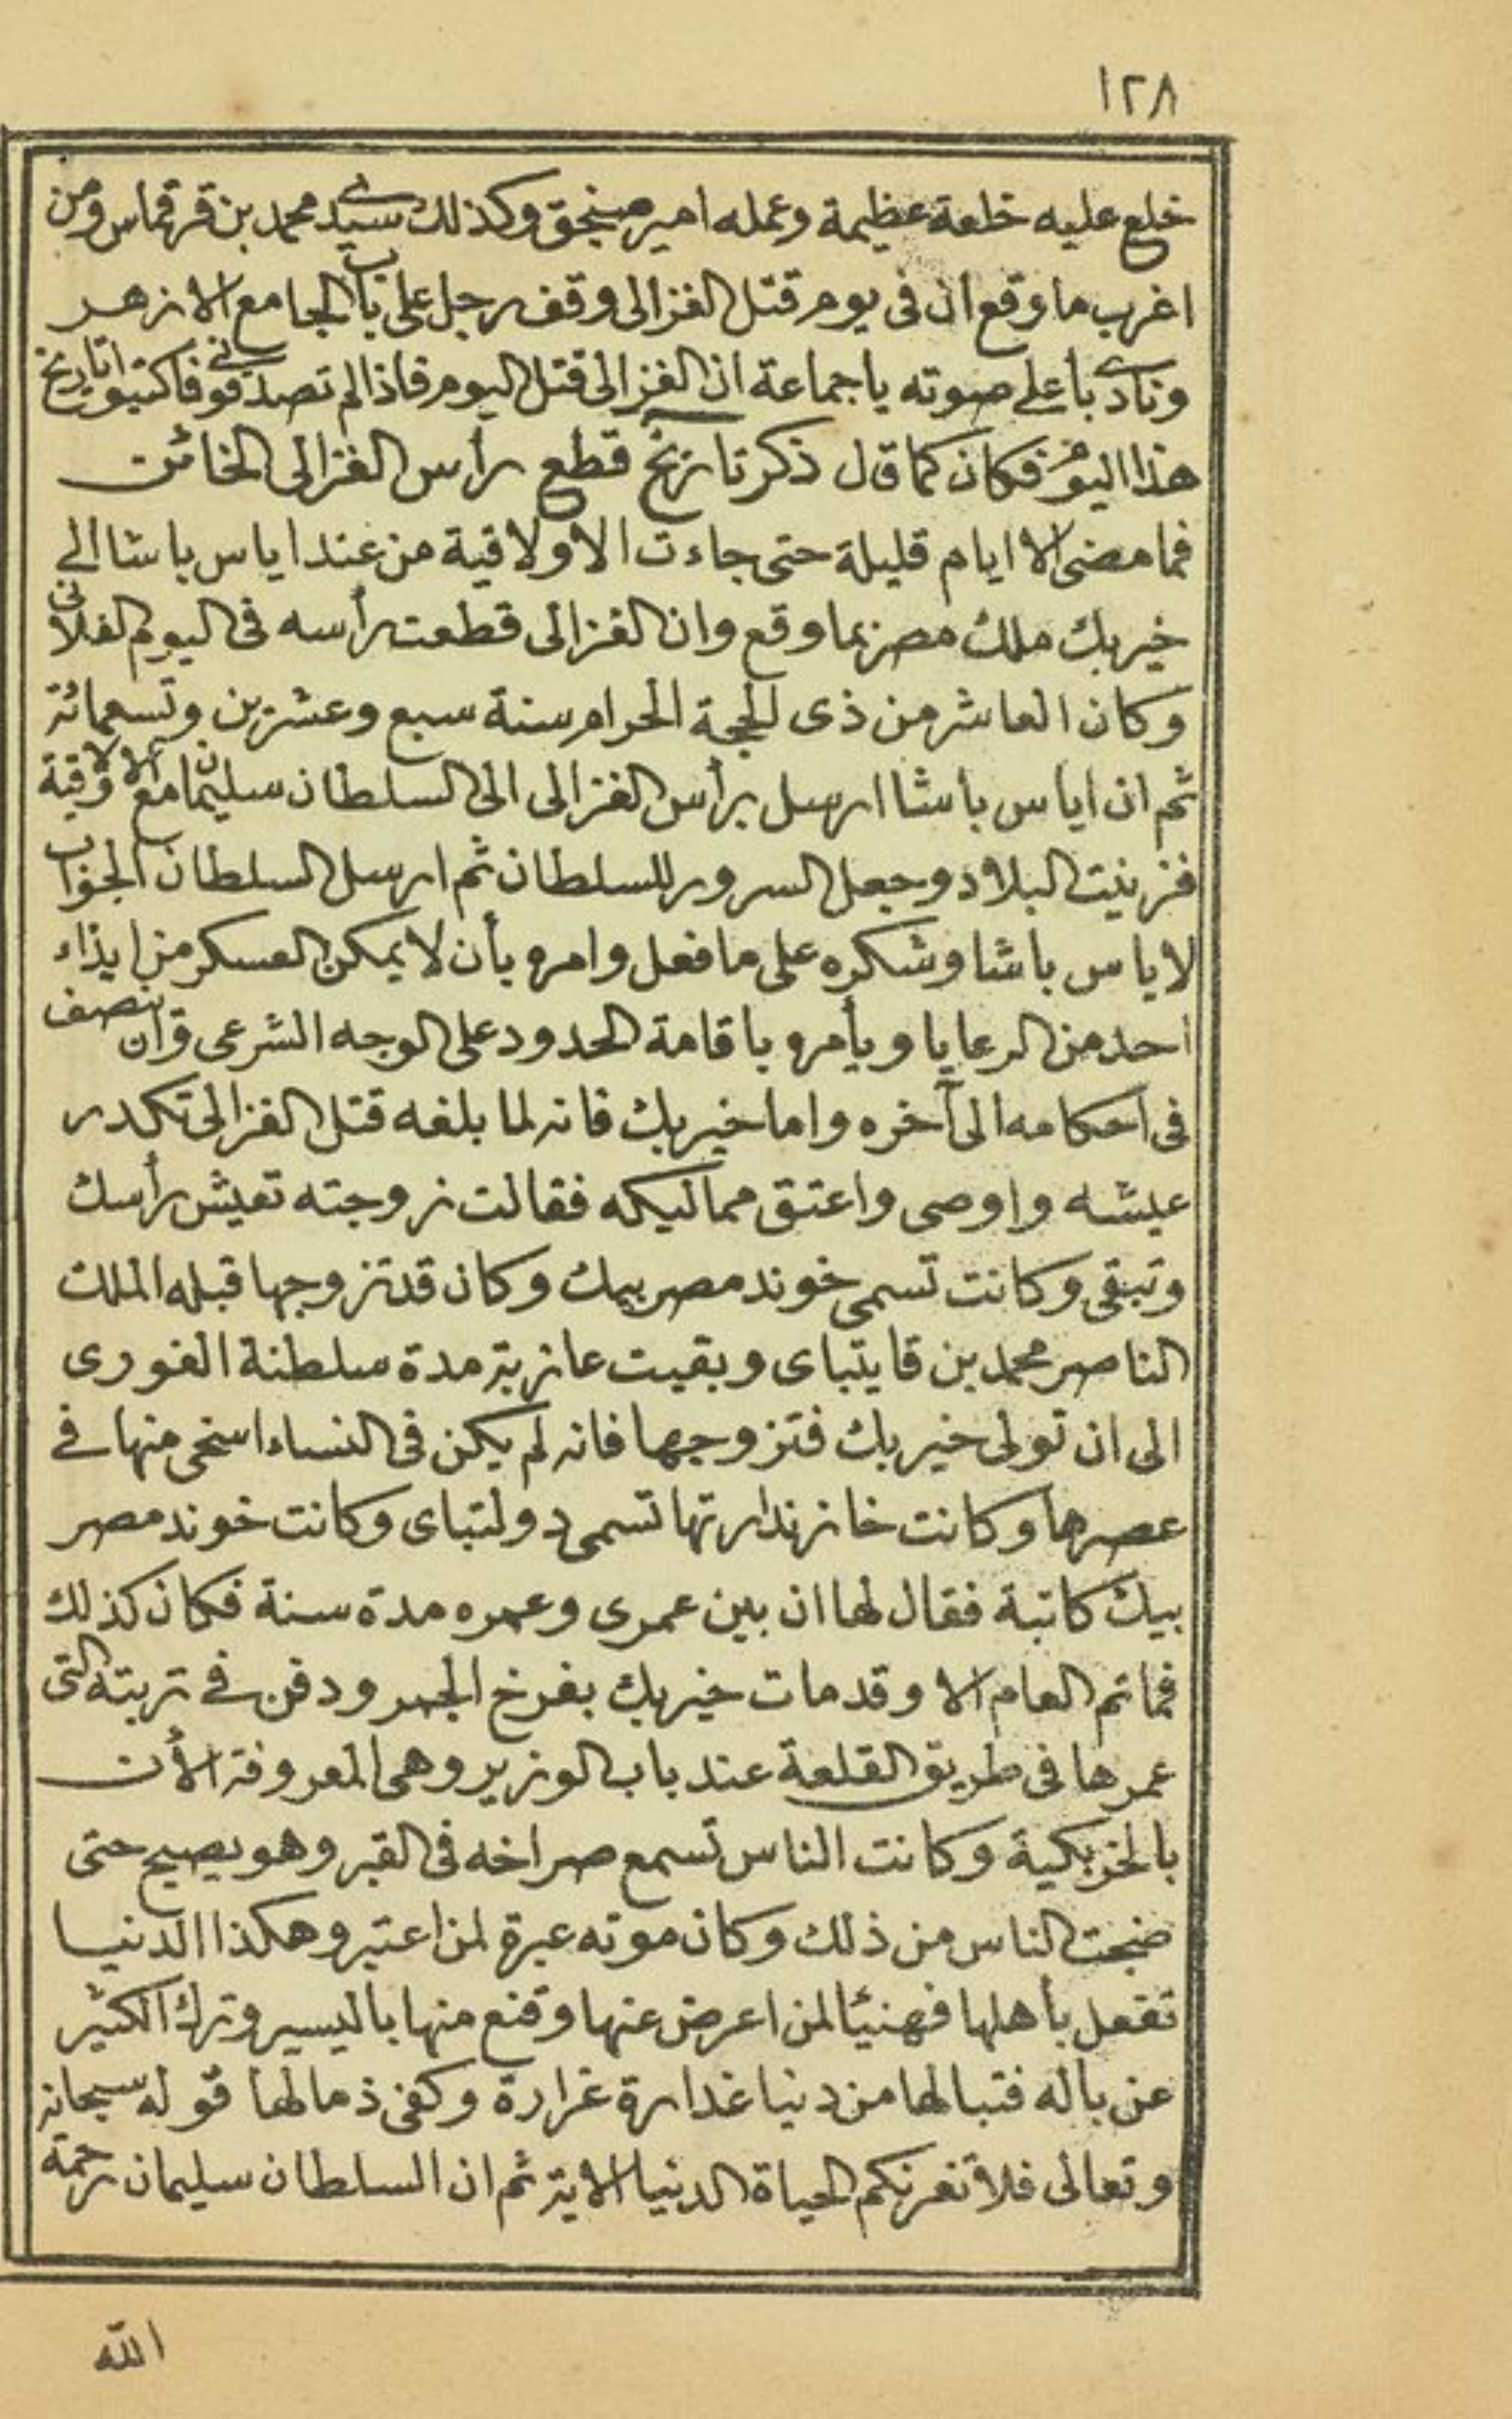 ١٢٨
خلع عليه خلعة عظيمة وعمله امير صنجق وكذلك سيدى محمد بن قرقماس ومن
اغرب ما وقع ان فى يوم قتل الغزالى وقف رجل على باب الجامع الازهر
ونادى بأعلى صوته يا جماعة ان الغزالى قتل اليوم فاذا لم تصدقونى فاكتبوا تاريخ
هذا اليوم فكان كما قال ذكر تاريخ قطع رأس الغزالى الخائن
فما مضى الا ايام قليلة حتى جاءت الاولاقية من عند اياس باشا الى
خير بك ملك مصر بما وقع وان الغزالى قطعت رأسه فى اليوم الفلانى
وكان العاشر من ذى الحجة الحرام سنة سبع وعشرين وتسعمائة
ثم ان اياس باشا ارسل برأس الغزالى الى السلطان سليمان مع الاولاقية
فزينت البلاد وحصل السرور للسلطان ثم ارسل السلطان الجواب
لاياس باشا وشكره على ما فعل وامره بأن لا يمكن العسكر من ايذاء
احد من الرعايا ويأمره باقامة الحدود على الوجه الشرعى وان ينصف
فى احكامه الى آخره واما خير بك فانه لما بلغه قتل الغزالى تكدر
عيشه واوصى واعتق مماليكه فقالت زوجته تعيش رأسك
وتبقى وكانت تسمى خوند مصر بيك وكان قد تزوجها قبله الملك
الناصر محمد بن قايتباى وبقيت عازبة مدة سلطنة الغورى
الى ان تولى خير بك فتزوجها فانه لم يكن فى النساء اسخى منها فى
عصرها وكانت خازندارتها تسمى دولتباى وكانت خوند مصر
بيك كاتبة فقال لها ان بين عمرى وعمره مدة سنة فكان كذلك
فما تم العام الا وقد مات خير بك بفرخ الجمر ودفن فى تربته التى
عمرها فى طريق القلعة عند باب الوزير وهى المعروفة الأن
بالخربكية وكانت الناس تسمع صراخه فى القبر وهو يصيح حتى
ضجت الناس من ذلك وكان موته عبرة لمن اعتبر وهكذا الدنيا
تفعل بأهلها فهنيئا لمن اعرض عنها وقنع منها باليسير وترك الكثير
عن باله فتبا لها من دنيا غدارة غرارة وكفى ذما لها قوله سبحانه
وتعالى فلا تغرنكم الحياة الدنيا الاية ثم ان السلطان سليمان رحمة
الله